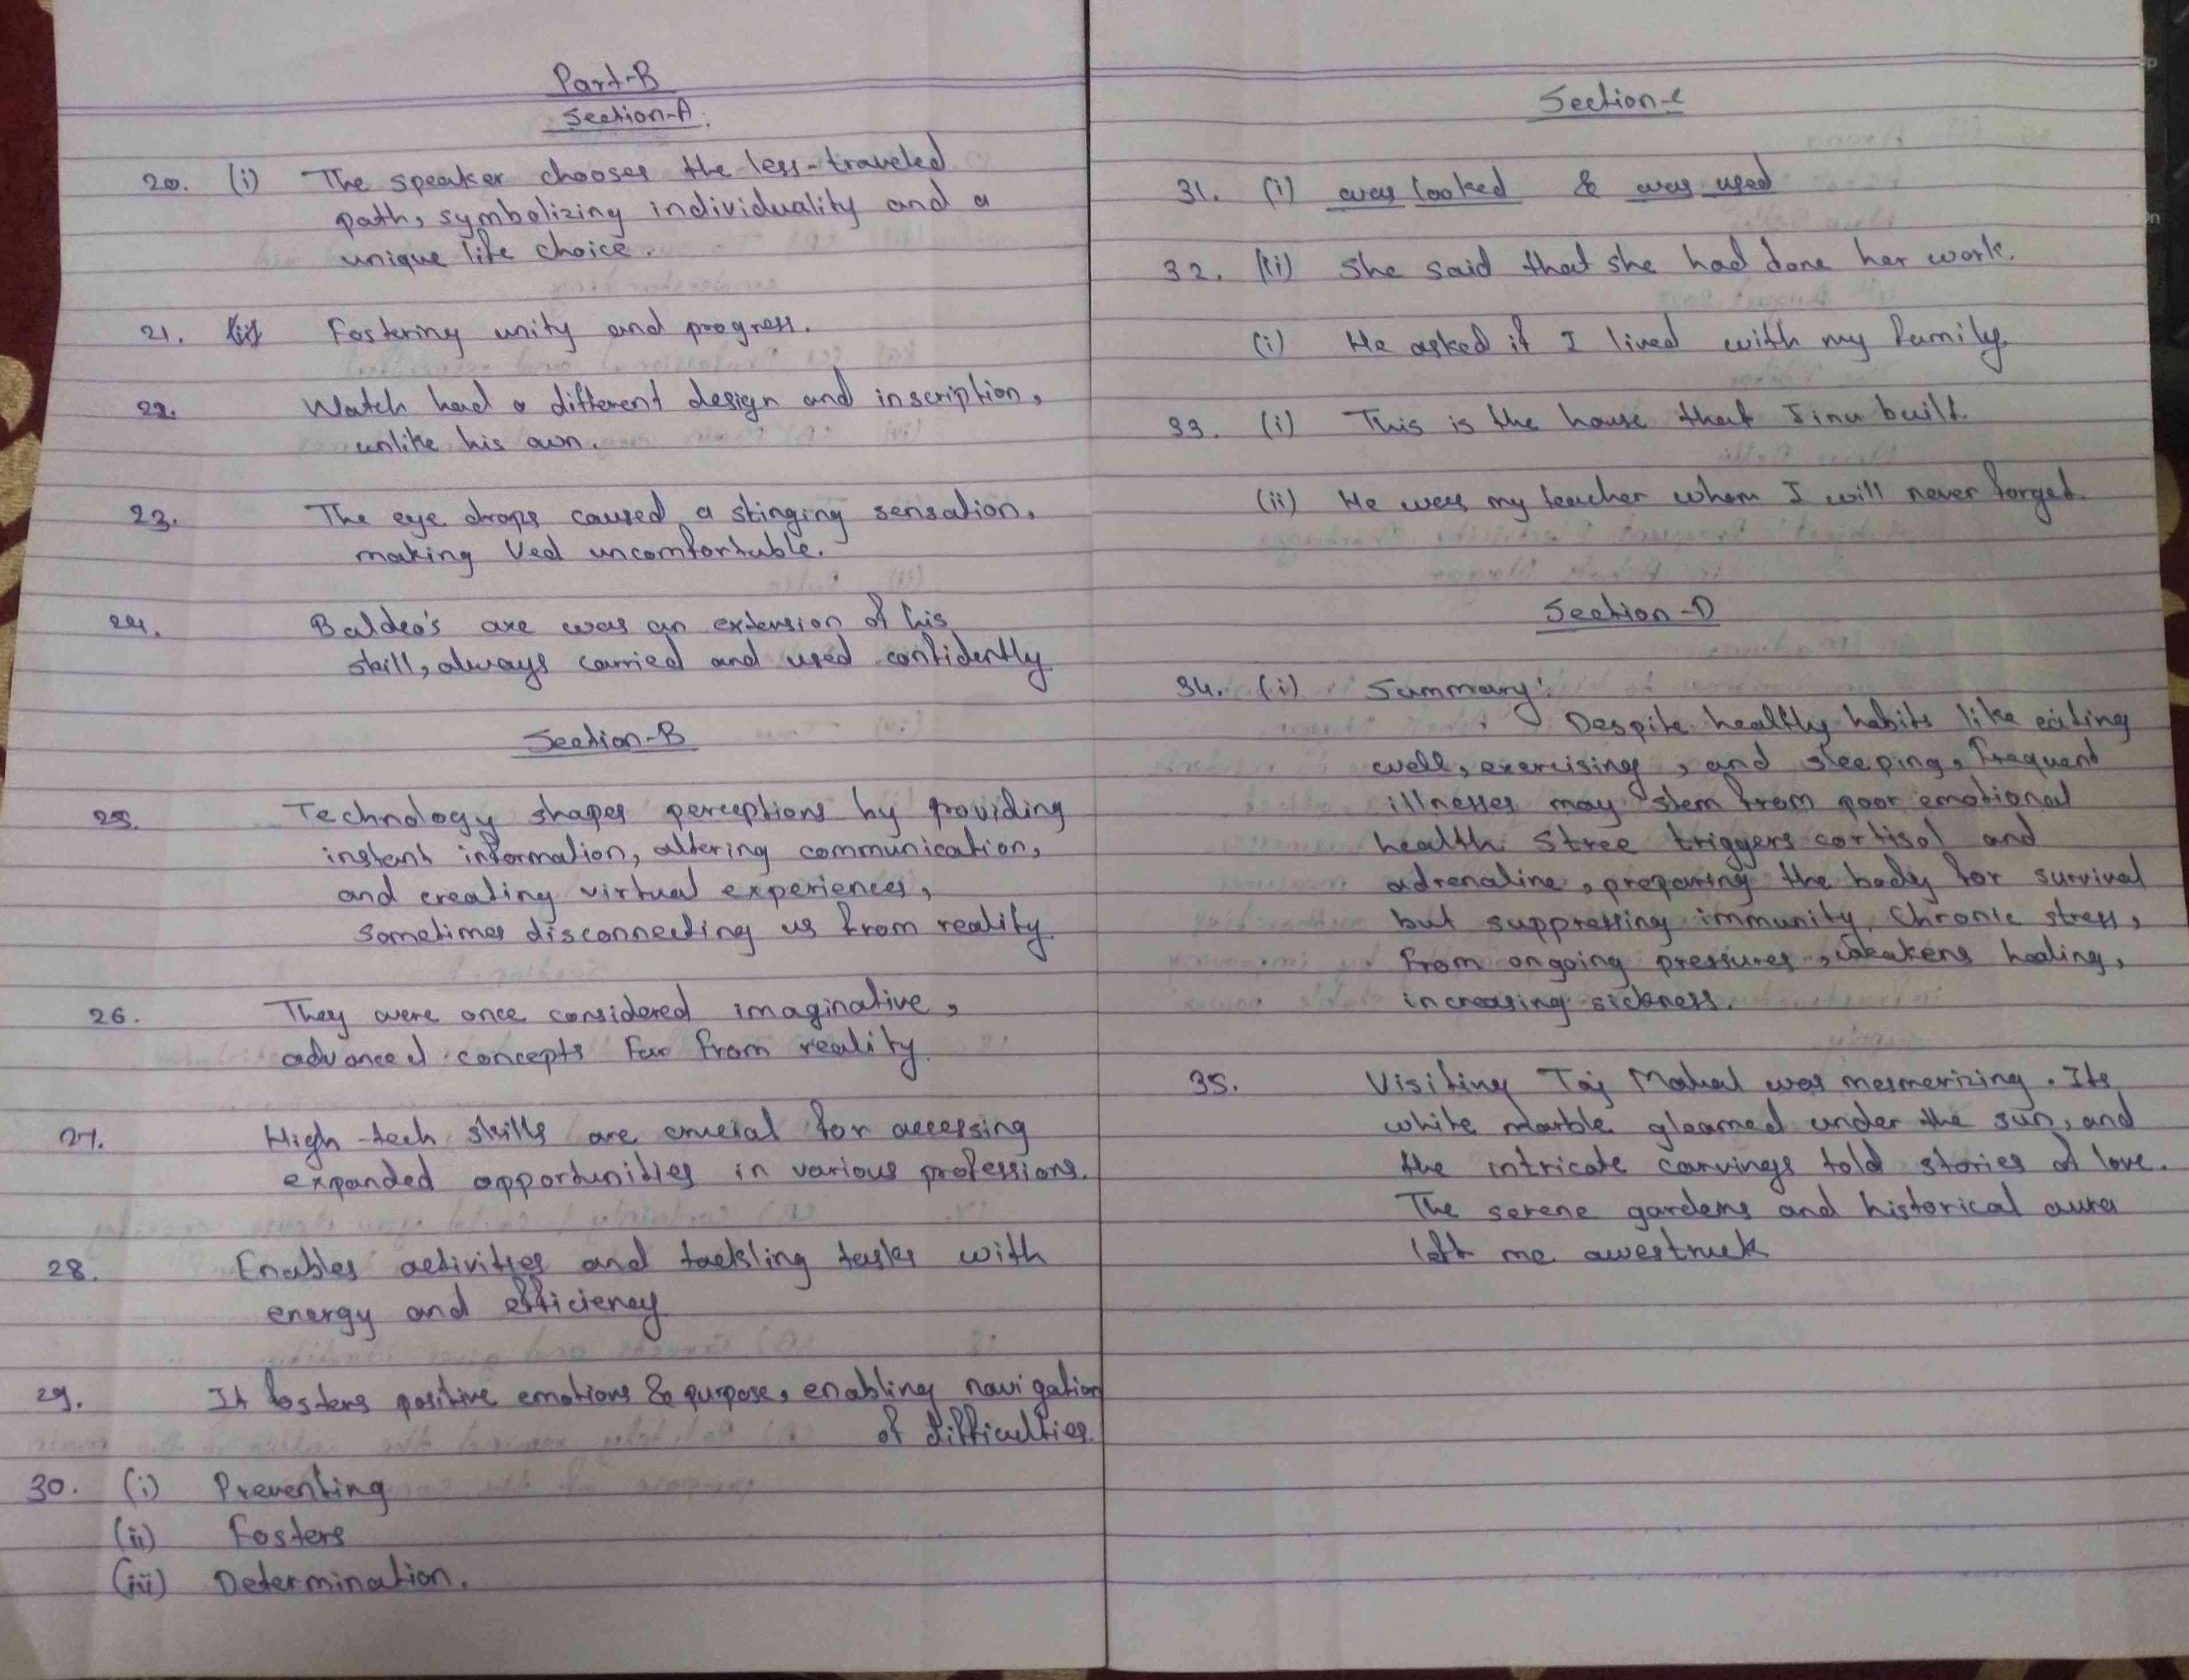 Part-B
Section-A.
20. (i) The speaker chooses the less-traveled
path, symbolizing individuality and a
unique life choice.
21. Fostering unity and progress.
22. Watch had a different design and inscription,
unlike his own.
23. The eye drops caused a stinging sensation,
making Ved uncomfortable.
24. Baldeo's axe was an extension of his
skill, always carried and used confidently
Section-B
25. Technology shapes perceptions by providing
instant information, altering communication,
and creating virtual experiences,
sometimes disconnecting us from reality
26. They were once considered imaginative,
advanced concepts far from reality.
27. High-tech skills are crucial for accessing
expanded opportunities in various professions.
28. Enables activities and tackling tasks with
energy and efficiency
29. It fosters positive emotions & purpose, enabling navigation
of difficulties.
30. (i) Preventing
(ii) Fosters
(iii) Determination.
Section-C
31. (i) was looked & was used
32. (ii) She said that she had done her work.
(i) He asked if I lived with my family.
33. (i) This is the house that Jinu built
(ii) He was my teacher whom I will never forget.
Section-D
34. (i) Summary:
Despite healthy habits like eating
well, exercising, and sleeping, frequent
illnesses may stem from poor emotional
health. Stree triggers cortisol and
adrenaline, preparing the body for survival
but suppressing immunity. Chronic stress,
from ongoing pressures, weakens healing,
increasing sickness.
35. Visiting Taj Mahal was mesmerizing. Its
white marble gleamed under the sun, and
the intricate carvings told stories of love.
The serene gardens and historical aura
left me awestruck